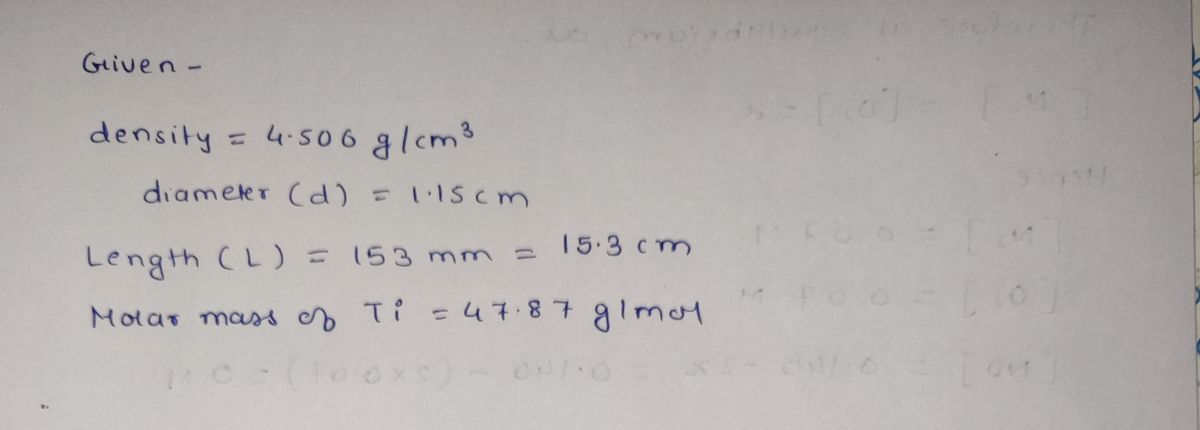 Given -
density = 4.506 g/cm³
diameter (d) = 1.15 cm
Length (L) = 153 mm = 15.3 cm
Molar mass of Ti = 47.87 g/mol